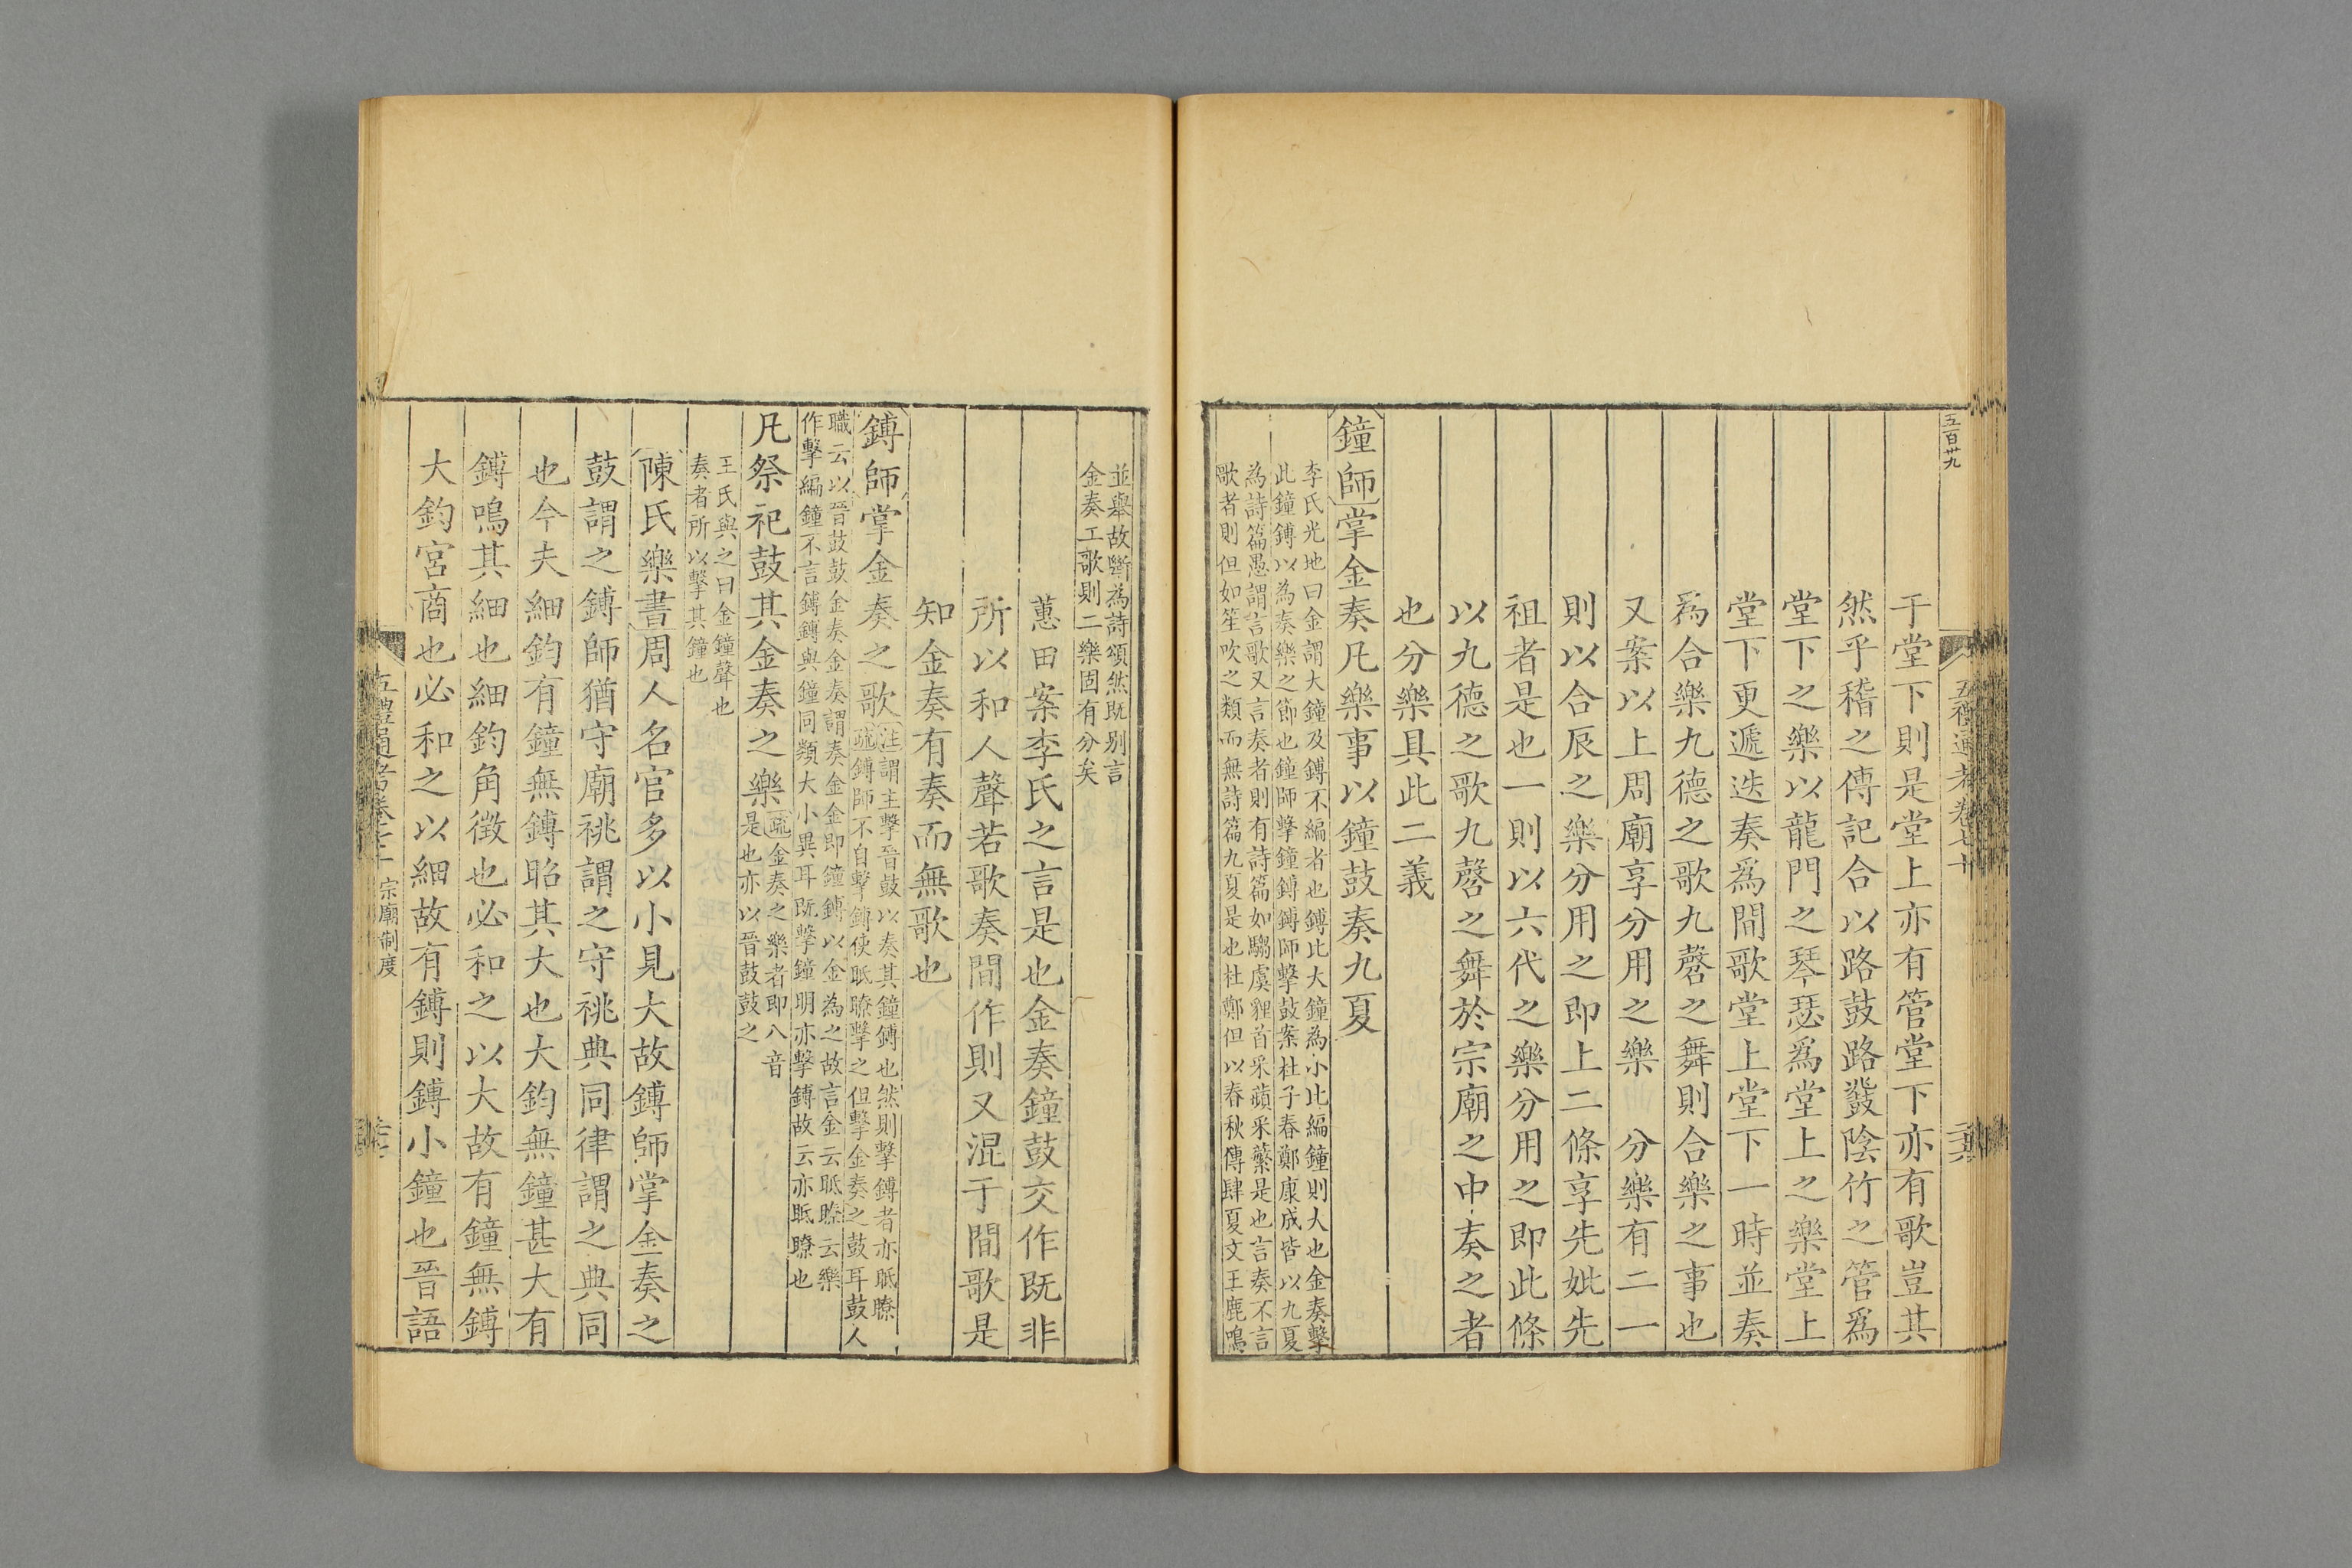 五百卅九
五禮通考卷七十
于堂下則是堂上亦有管堂下亦有歌豈其
然乎稽之傳記合以路鼓路鼗陰竹之管爲
堂下之樂以龍門之琴瑟爲堂上之樂堂上
堂下更遞迭奏爲間歌堂上堂下一時並奏
爲合樂九德之歌九磬之舞則合樂之事也
又案以上周廟享分用之樂 分樂有二一
則以合辰之樂分用之即上二條享先妣先
祖者是也一則以六代之樂分用之即此條
以九德之歌九磬之舞於宗廟之中奏之者
也分樂具此二義
鐘師掌金奏凡樂事以鐘鼓奏九夏
李氏光地曰金謂大鐘及鎛不編者也鎛比大鐘為小比編鐘則大也金奏擊
此鐘鎛以為奏樂之節也鐘師擊鐘鎛鎛師擊鼓案杜子春鄭康成皆以九夏
為詩篇愚謂言歌又言奏者則有詩篇如騶虞貍首采蘋采蘩是也言奏不言
歌者則但如笙吹之類而無詩篇九夏是也杜鄭但以春秋傳肆夏文王鹿鳴
並舉故斷為詩頌然既別言
金奏工歌則二樂固有分矣
蕙田案李氏之言是也金奏鐘鼓交作既非
所以和人聲若歌奏間作則又混于間歌是
知金奏有奏而無歌也
鎛師掌金奏之歌注謂主擊晉鼓以奏其鐘鎛也然則擊鎛者亦眡瞭
疏鎛師不自擊鎛使眡瞭擊之但擊金奏之鼓耳鼓人
職云以晉鼓鼓金奏金奏謂奏金金即鐘鎛以金為之故言金云眡瞭云樂
作擊編鐘不言鎛鎛與鐘同類大小異耳既擊鐘明亦擊鎛故云亦眡瞭也
凡祭祀鼓其金奏之樂疏金奏之樂者即八音
是也亦以晉鼓鼓之
王氏與之曰金鐘聲也
奏者所以擊其鐘也
陳氏樂書周人名官多以小見大故鎛師掌金奏之
鼓謂之鎛師猶守廟祧謂之守祧典同律謂之典同
也今夫細鈞有鐘無鎛昭其大也大鈞無鐘甚大有
鎛鳴其細也細鈞角徵也必和之以大故有鐘無鎛
大鈞宮商也必和之以細故有鎛則鎛小鐘也晉語
五禮通考卷七十 宗廟制度